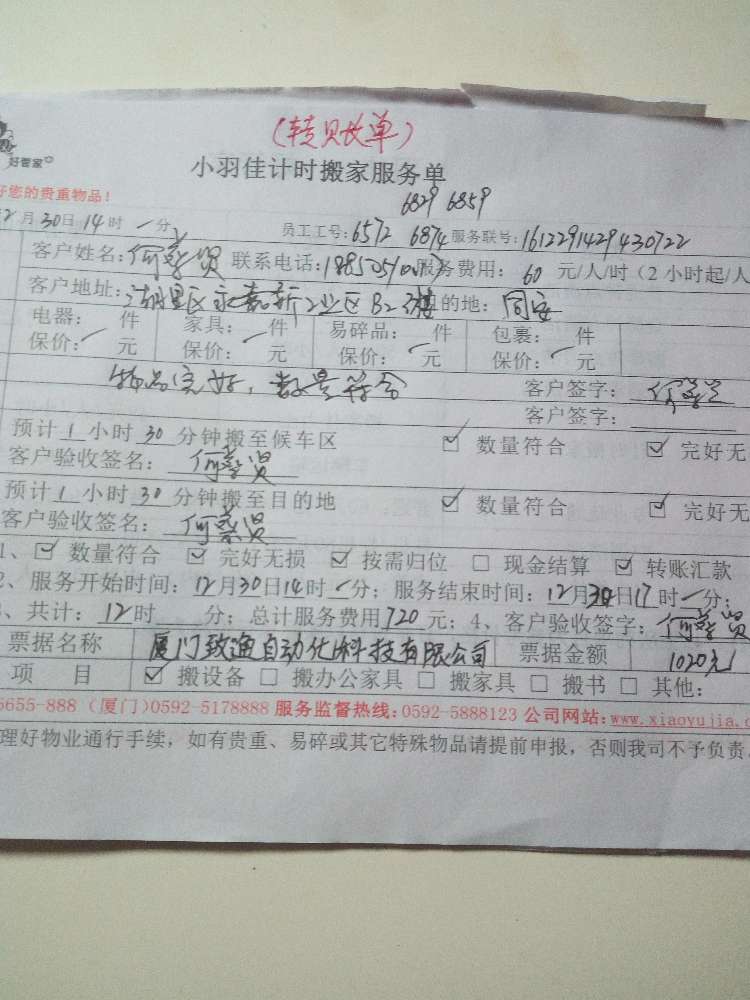 (转账单)
好管家
小羽佳计时搬家服务单
好您的贵重物品!
6829 6859
2月30日14时一分
员工工号:6572 6874 服务联号:1612291429430722
客户姓名:何 贤 联系电话: 服务费用: 60 元/人/时(2小时起/人
客户地址:湖里区永嘉新工业区B2 目的地:同安
电器: 件 家具: 件 易碎品: 件 包裹: 件
保价: 元 保价: 元 保价: 元 保价: 元
物品完好,数量符合 客户签字:何 贤
客户签字:
预计1小时30分钟搬至候车区 ☑ 数量符合 ☑ 完好无
客户验收签名: 何 贤
预计1小时30分钟搬至目的地 ☑ 数量符合 ☑ 完好无
客户验收签名: 何 贤
1、☑ 数量符合 ☑ 完好无损 ☑ 按需归位 □ 现金结算 ☑ 转账汇款
2、服务开始时间:12月30日14时一分; 服务结束时间:12月30日17时一分;
3、共计:12时 分; 总计服务费用720元;4、客户验收签字:何 贤
票据名称 厦门致通自动化科技有限公司 票据金额 1020元
项 目 ☑ 搬设备 □ 搬办公家具 □ 搬家具 □ 搬书 □ 其他:
5655-888 (厦门)0592-5178888 服务监督热线:0592-5888123 公司网站:www.xiaoyujia.c
理好物业通行手续,如有贵重、易碎或其它特殊物品请提前申报,否则我司不予负责